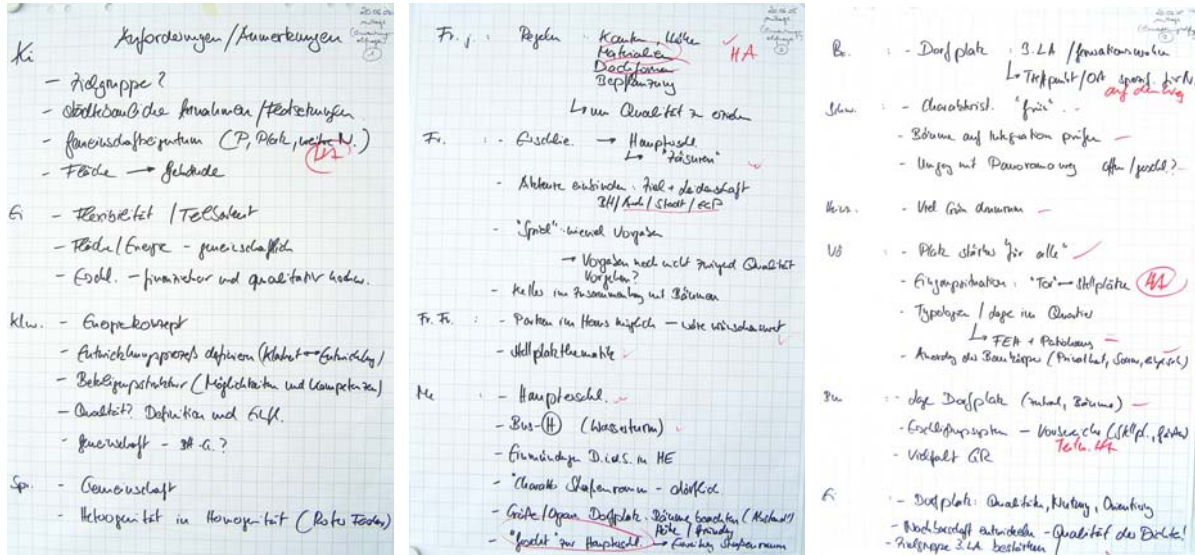 Anforderungen / Anmerkungen
Ki
- Zielgruppe?
- städtebauliche Annahmen / Festsetzungen
- Gemeinschaftseigentum (P, Platz, weitere N.)
HA
- Fläche → Gebäude
Ei - Flexibilität / Teilbarkeit
- Fläche / Energie - gemeinschaftlich
- Erschl. - finanzieller und qualitativ
Klw. - Energiekonzept
- Entwicklungsprozeß definieren (Klarheit ↔ Entwicklung)
- Beteiligungsstruktur (Möglichkeiten und Kompetenzen)
- Qualität? Definition und
- Gemeinschaft - ?
Spr. - Gemeinschaft
- Heterogenität in Homogenität (Roter Faden)
20.06.05
Fr. J. : Regeln Kanten, Höhe
Materialien HA
Dachformen
Bepflanzung
↳ um Qualität zu
Fr. : - Erschlie. → Haupterschl.
↳ "Zäsuren"
- Akteure einbinden: Ziel + Leidenschaft
/ Stadt / ECP
- "Spiel" wieviel Vorgaben
→ Vorgaben noch nicht zwingend Qualität
Vorgehen?
- Keller im Zusammenhang mit Bäumen
Fr. Fr. : - Parken im Haus möglich - wäre wünschenswert
- Stellplatzthematik
Me : - Haupterschl.
- Bus-(H) (Wasserturm)
- Einmündungen D.i.d.S. in HE
- "Charakter Straßenraum - dörflich
- Größe / Organ Dorfplatz. Bäume beachten (Abstand)
Höhe /
- zur Haupterschl. → Straßenraum
20.06.05
: - Dorfplatz : 3.LA /
↳ Treffpunkt / OA spezif. für N.
auf dem Weg
- Charakterist. "grün"
- Bäume auf Integration prüfen
- Umgang mit Panoramaweg offen / geschl.?
- Viel Grün drumrum
Vö - Platz stärker "für alle"
- Eingangssituation: "Tor" - Stellplätze HA
- Typologien / Lage im Quartier
↳ FEA + Patiohaus
- Anordng der Baukörper (Privatheit, Sonne,
: - Lage Dorfplatz (zentral, Bäume)
- Erschließungssystem - Vorbereiche (Stellpl., Gärten)
- Vielfalt GR
Ei : - Dorfplatz: Qualitäten, Nutzung, Orientierung
- Nachbarschaft entwickeln - Qualität der Dichte!
- Zielgruppe 3.LA